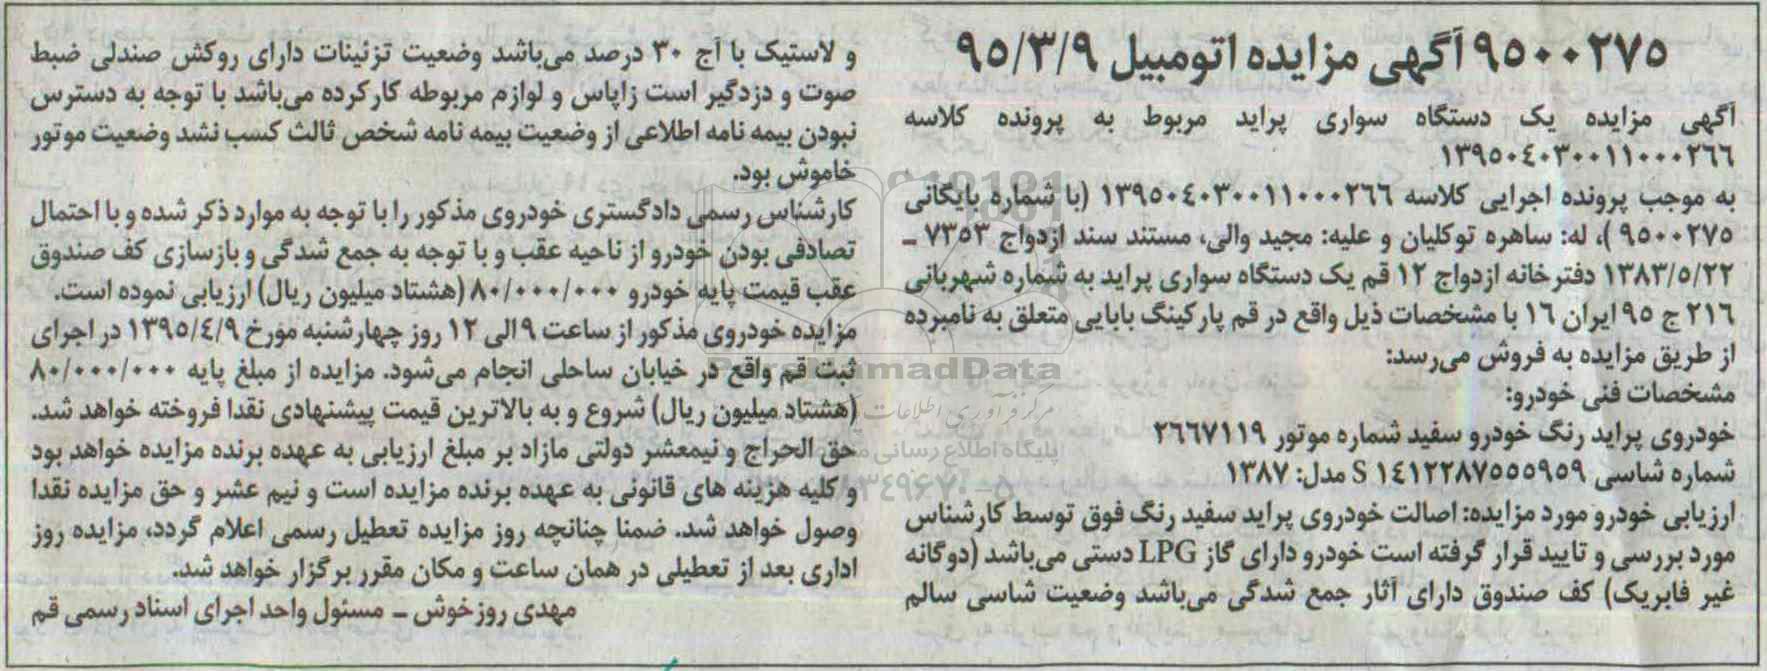 ۹۵۰۰۲۷۵ آگهی مزایده اتومبیل ۹۵/۳/۹
آگهی مزایده یک دستگاه سواری پراید مربوط به پرونده کلاسه
۱۳۹۵۰۴۰۳۰۰۱۱۰۰۰۲۶۶
به موجب پرونده اجرایی کلاسه ۱۳۹۵۰۴۰۳۰۰۱۱۰۰۰۲۶۶ (با شماره بایگانی
۹۵۰۰۲۷۵)، له: ساهره توکلیان و علیه: مجید والی، مستند سند ازدواج ۷۳۵۳ ـ
۱۳۸۳/۵/۲۲ دفترخانه ازدواج ۱۲ قم یک دستگاه سواری پراید به شماره شهربانی
۲۱۶ ج ۹۵ ایران ۱۶ با مشخصات ذیل واقع در قم پارکینگ بابایی متعلق به نامبرده
از طریق مزایده به فروش می‌رسد:
مشخصات فنی خودرو:
خودروی پراید رنگ خودرو سفید شماره موتور ۲۶۶۷۱۱۹
شماره شاسی S ۱۴۱۲۲۸۷۵۵۵۹۵۹ مدل: ۱۳۸۷
ارزیابی خودرو مورد مزایده: اصالت خودروی پراید سفید رنگ فوق توسط کارشناس
مورد بررسی و تایید قرار گرفته است خودرو دارای گاز LPG دستی می‌باشد (دوگانه
غیر فابریک) کف صندوق دارای آثار جمع شدگی می‌باشد وضعیت شاسی سالم
و لاستیک با آج ۳۰ درصد می‌باشد وضعیت تزئینات دارای روکش صندلی ضبط
صوت و دزدگیر است زاپاس و لوازم مربوطه کارکرده می‌باشد با توجه به دسترس
نبودن بیمه نامه اطلاعی از وضعیت بیمه نامه شخص ثالث کسب نشد وضعیت موتور
خاموش بود.
کارشناس رسمی دادگستری خودروی مذکور را با توجه به موارد ذکر شده و با احتمال
تصادفی بودن خودرو از ناحیه عقب و با توجه به جمع شدگی و بازسازی کف صندوق
عقب قیمت پایه خودرو ۸۰/۰۰۰/۰۰۰ (هشتاد میلیون ریال) ارزیابی نموده است.
مزایده خودروی مذکور از ساعت ۹ الی ۱۲ روز چهارشنبه مورخ ۱۳۹۵/۴/۹ در اجرای
ثبت قم واقع در خیابان ساحلی انجام می‌شود. مزایده از مبلغ پایه ۸۰/۰۰۰/۰۰۰
(هشتاد میلیون ریال) شروع و به بالاترین قیمت پیشنهادی نقدا فروخته خواهد شد.
حق الحراج و نیمعشر دولتی مازاد بر مبلغ ارزیابی به عهده برنده مزایده خواهد بود
و کلیه هزینه های قانونی به عهده برنده مزایده است و نیم عشر و حق مزایده نقدا
وصول خواهد شد. ضمنا چنانچه روز مزایده تعطیل رسمی اعلام گردد، مزایده روز
اداری بعد از تعطیلی در همان ساعت و مکان مقرر برگزار خواهد شد.
مهدی روزخوش ـ مسئول واحد اجرای اسناد رسمی قم